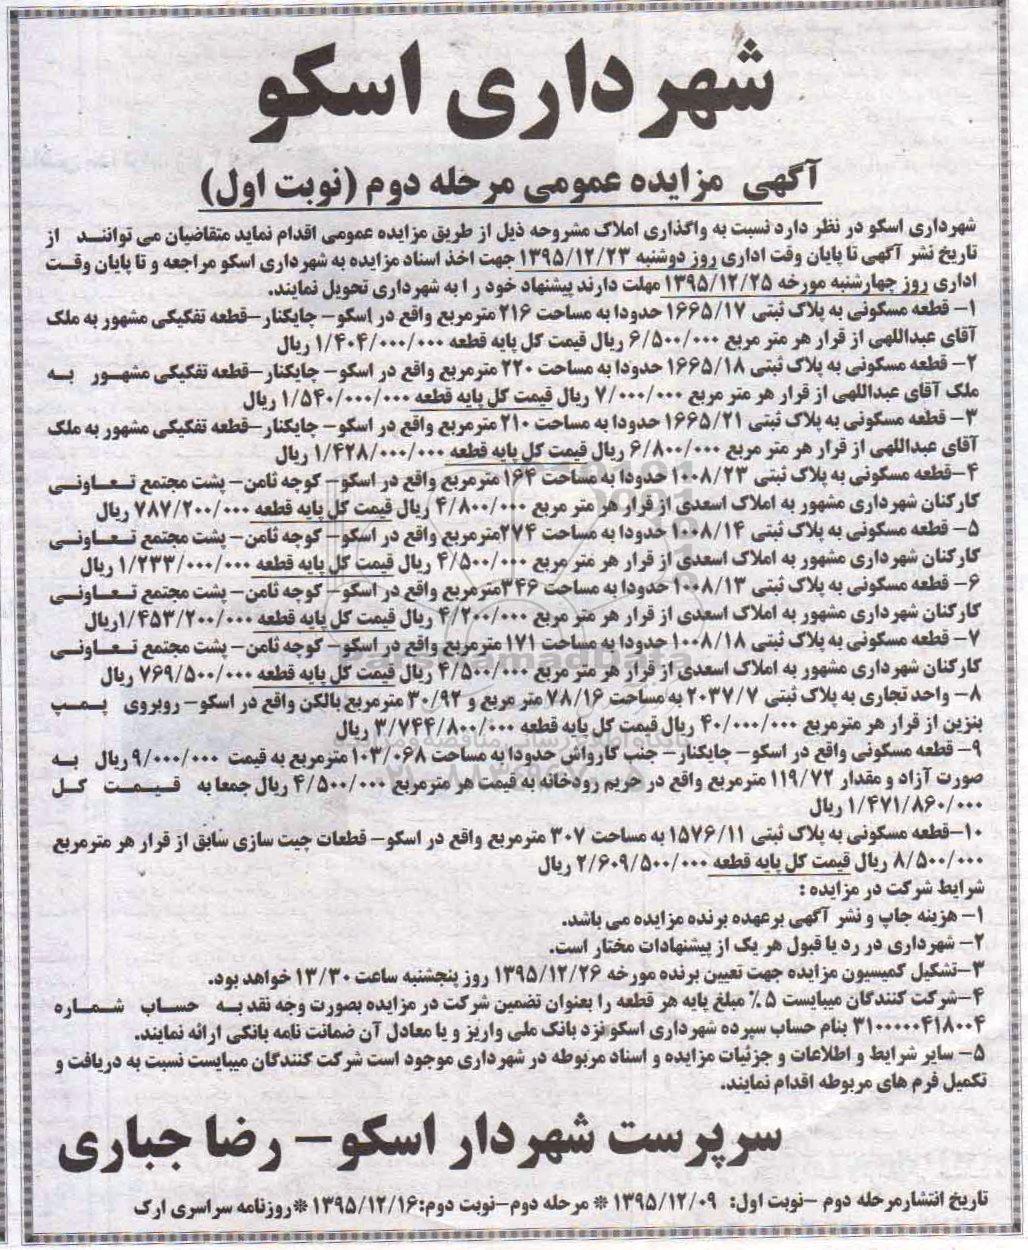 شهرداری اسکو
آگهی مزایده عمومی مرحله دوم (نوبت اول)
شهرداری اسکو در نظر دارد نسبت به واگذاری املاک مشروحه ذیل از طریق مزایده عمومی اقدام نماید متقاضیان می توانند از
تاریخ نشر آگهی تا پایان وقت اداری روز دوشنبه ۱۳۹۵/۱۲/۲۳ جهت اخذ اسناد مزایده به شهرداری اسکو مراجعه و تا پایان وقت
اداری روز چهارشنبه مورخه ۱۳۹۵/۱۲/۲۵ مهلت دارند پیشنهاد خود را به شهرداری تحویل نمایند.
۱- قطعه مسکونی به پلاک ثبتی ۱۶۶۵/۱۷ حدودا به مساحت ۲۱۶ مترمربع واقع در اسکو- چایکنار-قطعه تفکیکی مشهور به ملک
آقای عبداللهی از قرار هر متر مربع ۶/۵۰۰/۰۰۰ ریال قیمت کل پایه قطعه ۱/۴۰۴/۰۰۰/۰۰۰ ریال
۲- قطعه مسکونی به پلاک ثبتی ۱۶۶۵/۱۸ حدودا به مساحت ۲۲۰ مترمربع واقع در اسکو- چایکنار-قطعه تفکیکی مشهور به
ملک آقای عبداللهی از قرار هر متر مربع ۷/۰۰۰/۰۰۰ ریال قیمت کل پایه قطعه ۱/۵۴۰/۰۰۰/۰۰۰ ریال
۳- قطعه مسکونی به پلاک ثبتی ۱۶۶۵/۲۱ حدودا به مساحت ۲۱۰ مترمربع واقع در اسکو- چایکنار-قطعه تفکیکی مشهور به ملک
آقای عبداللهی از قرار هر متر مربع ۶/۸۰۰/۰۰۰ ریال قیمت کل پایه قطعه ۱/۴۲۸/۰۰۰/۰۰۰ ریال
۴-قطعه مسکونی به پلاک ثبتی ۱۰۰۸/۲۳ حدودا به مساحت ۱۶۴ مترمربع واقع در اسکو- کوچه ثامن- پشت مجتمع تعاونی
کارکنان شهرداری مشهور به املاک اسعدی از قرار هر متر مربع ۴/۸۰۰/۰۰۰ ریال قیمت کل پایه قطعه ۷۸۷/۲۰۰/۰۰۰ ریال
۵- قطعه مسکونی به پلاک ثبتی ۱۰۰۸/۱۴ حدودا به مساحت ۲۷۴مترمربع واقع در اسکو- کوچه ثامن- پشت مجتمع تعاونی
کارکنان شهرداری مشهور به املاک اسعدی از قرار هر متر مربع ۴/۵۰۰/۰۰۰ ریال قیمت کل پایه قطعه ۱/۲۳۳/۰۰۰/۰۰۰ ریال
۶- قطعه مسکونی به پلاک ثبتی ۱۰۰۸/۱۳ حدودا به مساحت ۳۴۶مترمربع واقع در اسکو- کوچه ثامن- پشت مجتمع تعاونی
کارکنان شهرداری مشهور به املاک اسعدی از قرار هر متر مربع ۴/۲۰۰/۰۰۰ ریال قیمت کل پایه قطعه ۱/۴۵۳/۲۰۰/۰۰۰ریال
۷- قطعه مسکونی به پلاک ثبتی ۱۰۰۸/۱۸ حدودا به مساحت ۱۷۱ مترمربع واقع در اسکو- کوچه ثامن- پشت مجتمع تعاونی
کارکنان شهرداری مشهور به املاک اسعدی از قرار هر متر مربع ۴/۵۰۰/۰۰۰ ریال قیمت کل پایه قطعه ۷۶۹/۵۰۰/۰۰۰ ریال
۸- واحد تجاری به پلاک ثبتی ۲۰۳۷/۷ به مساحت ۷۸/۱۶ متر مربع و ۳۰/۹۲ مترمربع بالکن واقع در اسکو- روبروی پمپ
بنزین از قرار هر مترمربع ۴۰/۰۰۰/۰۰۰ ریال قیمت کل پایه قطعه ۳/۷۴۴/۸۰۰/۰۰۰ ریال
۹- قطعه مسکونی واقع در اسکو- چایکنار- جنب کارواش حدودا به مساحت ۱۰۳/۰۶۸ مترمربع به قیمت ۹/۰۰۰/۰۰۰ ریال به
صورت آزاد و مقدار ۱۱۹/۷۲ مترمربع واقع در حریم رودخانه به قیمت هر مترمربع ۴/۵۰۰/۰۰۰ ریال جمعا به قیمت کل
۱/۴۷۱/۸۶۰/۰۰۰ ریال
۱۰-قطعه مسکونی به پلاک ثبتی ۱۵۷۶/۱۱ به مساحت ۳۰۷ مترمربع واقع در اسکو- قطعات چیت سازی سابق از قرار هر مترمربع
۸/۵۰۰/۰۰۰ ریال قیمت کل پایه قطعه ۲/۶۰۹/۵۰۰/۰۰۰ ریال
شرایط شرکت در مزایده :
۱- هزینه چاپ و نشر آگهی برعهده برنده مزایده می باشد.
۲- شهرداری در رد یا قبول هر یک از پیشنهادات مختار است.
۳-تشکیل کمیسیون مزایده جهت تعیین برنده مورخه ۱۳۹۵/۱۲/۲۶ روز پنجشنبه ساعت ۱۳/۳۰ خواهد بود.
۴-شرکت کنندگان میبایست ۵٪ مبلغ پایه هر قطعه را بعنوان تضمین شرکت در مزایده بصورت وجه نقد به حساب شماره
۳۱۰۰۰۰۰۴۱۸۰۰۴ بنام حساب سپرده شهرداری اسکو نزد بانک ملی واریز و یا معادل آن ضمانت نامه بانکی ارائه نمایند.
۵- سایر شرایط و اطلاعات و جزئیات مزایده و اسناد مربوطه در شهرداری موجود است شرکت کنندگان میبایست نسبت به دریافت و
تکمیل فرم های مربوطه اقدام نمایند.
سرپرست شهردار اسکو- رضا جباری
تاریخ انتشارمرحله دوم -نوبت اول: ۱۳۹۵/۱۲/۰۹ * مرحله دوم-نوبت دوم:۱۳۹۵/۱۲/۱۶ *روزنامه سراسری ارک